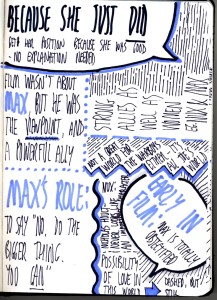 BECAUSE SHE JUST DID
GOT HER POSITION BECAUSE SHE WAS GOOD
- NO EXPLANATION NEEDED
FILM WASN'T ABOUT
MAX, BUT HE WAS
THE VIEWPOINT, AND
A POWERFUL ALLY
STRONG
ALLIES AS
WELL AS
WOMEN
BEING KICK
NOT A GREAT
WORLD FOR
THE WARBOYS
EITHER.
MAX'S ROLE:
TO SAY "NO. DO THE
BIGGER THING.
YOU CAN"
POSSIBILITY
OF LOVE IN
THIS WORLD
EARLY IN
FILM:
MAX IS TOTALLY
OBJECTIFIED